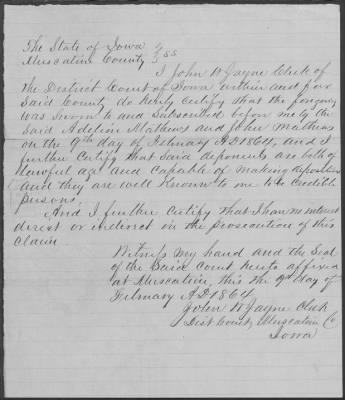 The State of Iowa }
Muscatine County } SS
I John W Jayne Clerk of
the District Court of Iowa within and for
Said County do hereby Certify that the foregoing
was Sworn to and Subscribed before me by the
Said Adeline Mathews and John Mathews
on the 9th day of February AD 1864, and I
further Certify that said deponents are both of
lawful age and Capable of making depositions
and they are well Known to me to be Credible
persons,
And I further Certify that I have no interest
direct or indirect in the prosecution of this
Claim.
Witness my hand and the Seal
of the Said Court hereto affixed
at Muscatine, this the 9th day of
February AD 1864
John W Jayne Clerk
Dist Court, Muscatine Co
Iowa